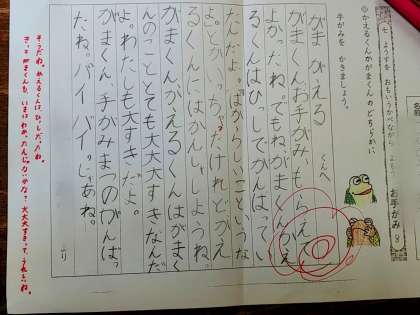 七 ようすを おもいうかべながら よもう お手がみ 8
◎かえるくんかがまくんのどちらかに
手がみを かきましょう。
がま がえる くんへ
がまくんお手がみ、もらえて
よかったね。でもねがまくんかえ
るくんはひっしでがんばってい
たんだよ。ばからしいこというな
よ。とかいっちゃだけれどがえ
るくんにはかんしゃしようね。
がまくんがえるくんはがまく
んのこととても大大大すきなんだ
よ。わたしも大すきだよ。
がまくん、手がみまつのがんばっ
たね。バイバイ。じゃあね。
より
そうだね。かえるくんは、ひっしだったね。
きっとがまくんも、いまは
大大大すきって、うれしいね。
名前